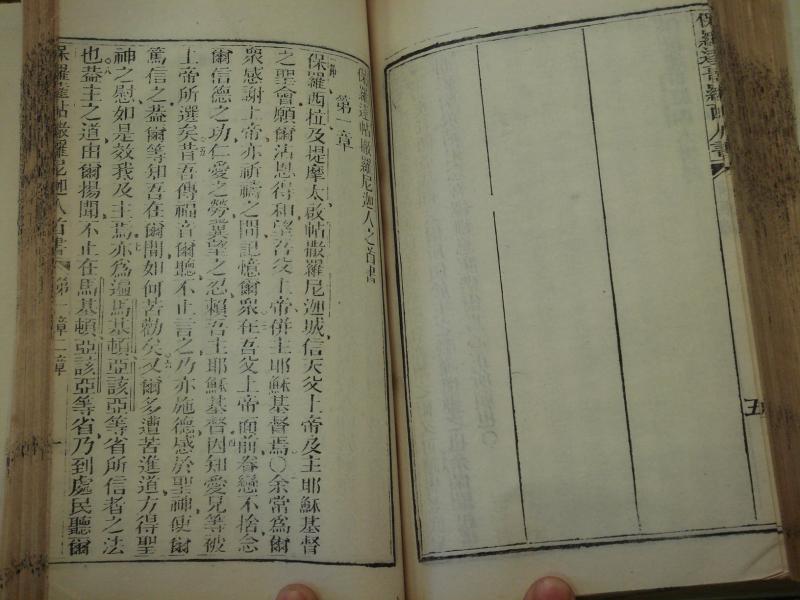 五
保羅達帖撒羅尼迦人之首書
第一章
保羅西拉及提摩太啟帖撒羅尼迦城信天父上帝及主耶穌基督
之聖會願爾沾恩得和望吾父上帝併主耶穌基督焉〇余常為爾
眾感謝上帝亦祈禱之間記憶爾眾在吾父上帝面前眷戀不捨念
爾信德之功仁愛之勞冀望之忍賴吾主耶穌基督因知愛兄等被
上帝所選矣昔吾傳福音爾聽不止言之乃亦施德感於聖神使爾
篤信之蓋爾等知吾在爾間如何苦勸矣又爾多遭苦進道方得聖
神之慰如是效我及主焉亦為遍馬基頓亞該亞等省所信者之法
也蓋主之道由爾揚聞不止在馬基頓亞該亞等省乃到處民聽爾
保羅達帖撒羅尼迦人首書 第一章二章 一